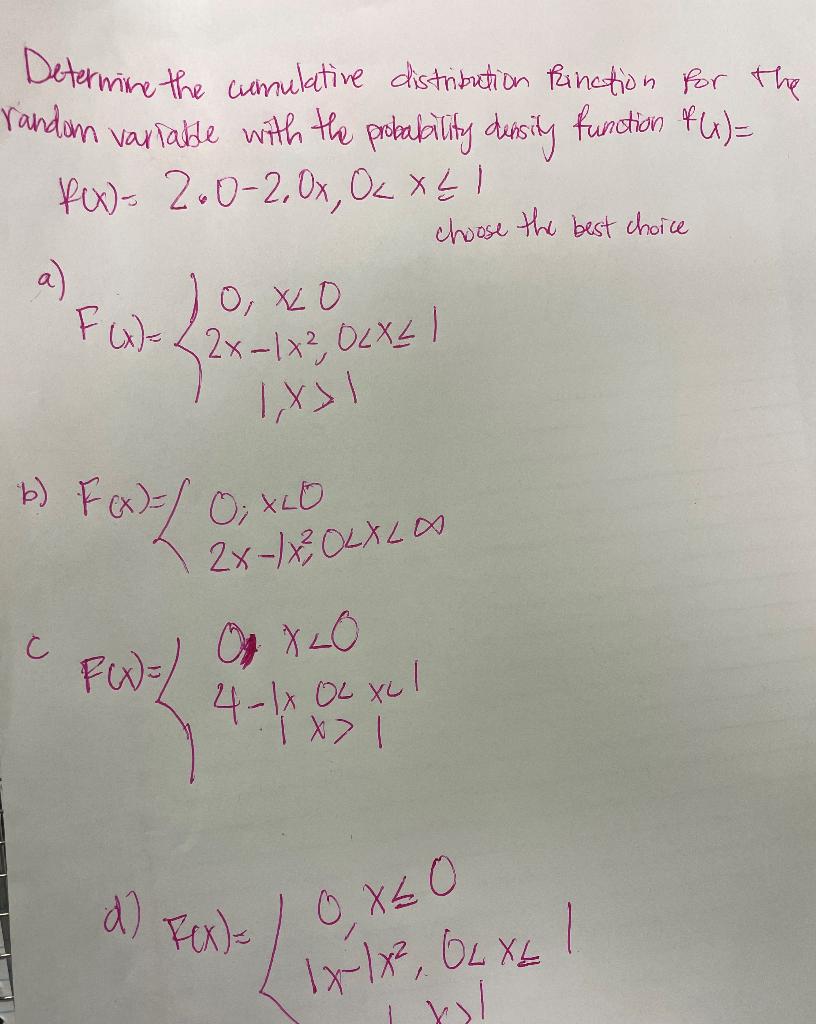 Determine the cumulative distribution function for the
random variable with the probability density function f(x)=
f(x)= 2.0-2.0x, 0< x ≤ 1
choose the best choice
a)
0, x<0
F(x)= { 2x-1x², 0<x≤ 1
1, x>1
b) F(x)= { 0; x<0
2x-1x², 0<x<∞
c
0, x<0
F(x)= { 4-1x 0< x<1
1 x>1
d)
0, x≤0
F(x)= { 1x-1x², 0< x≤ 1
1 x>1